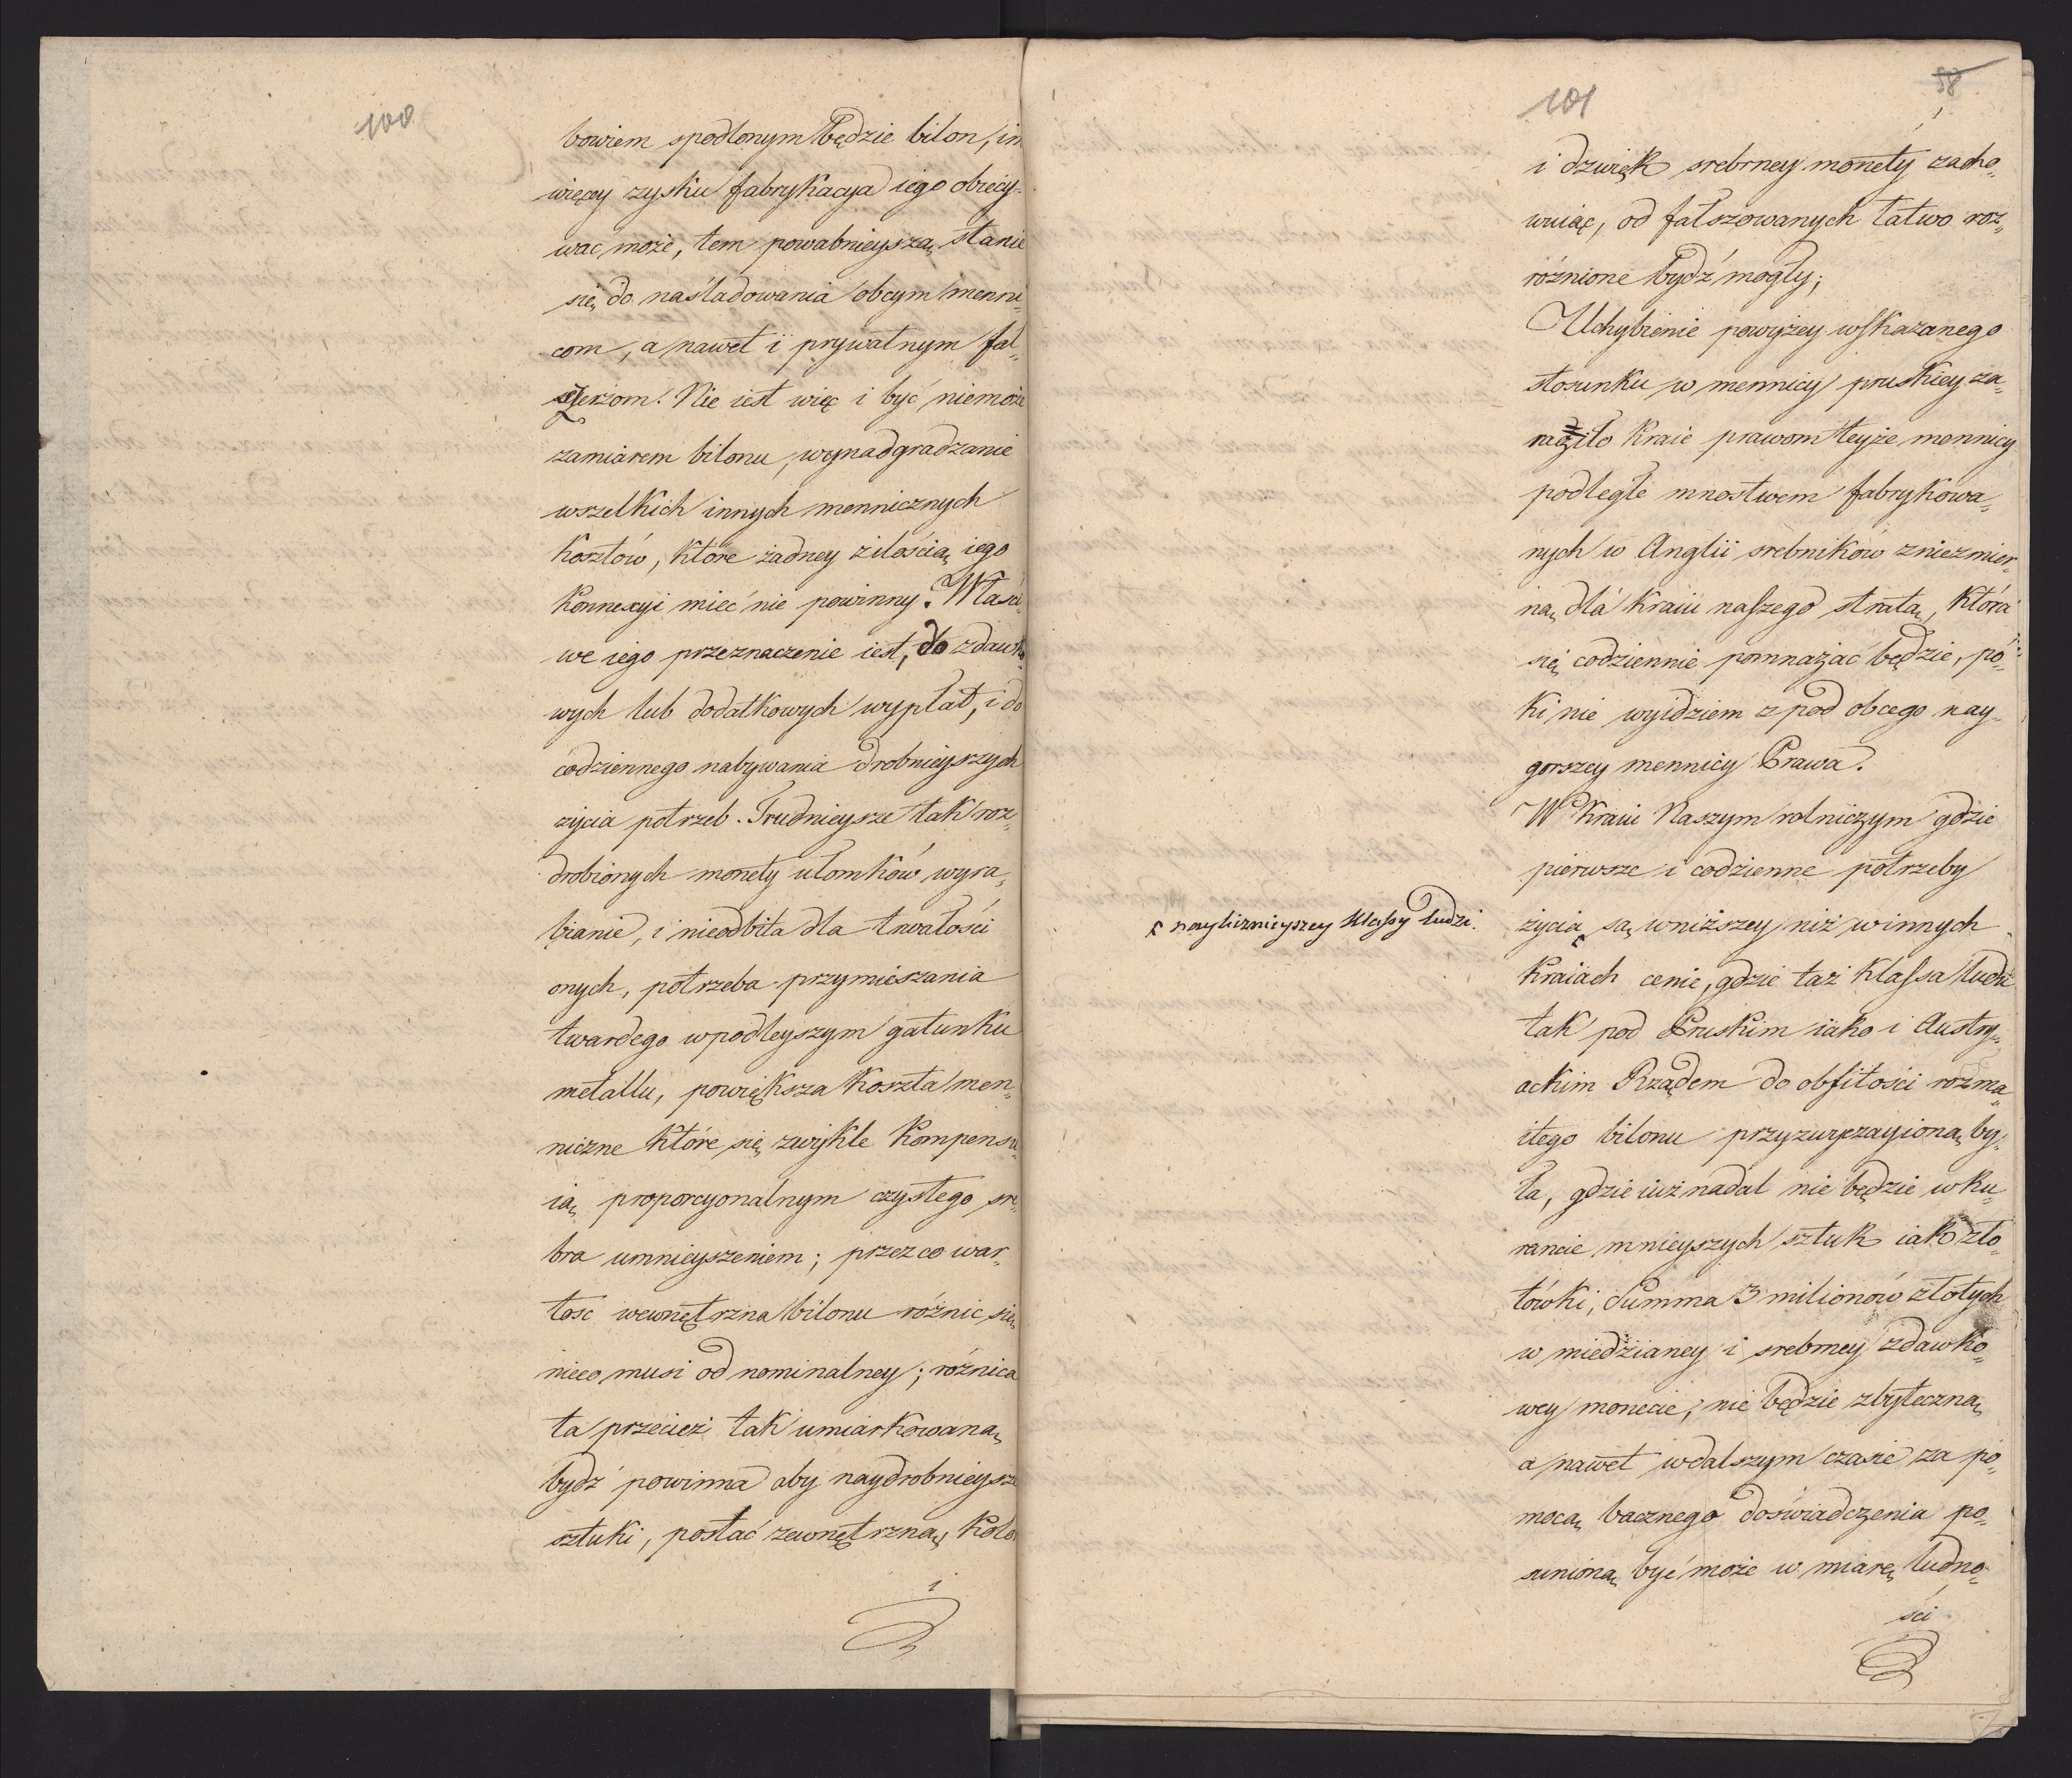 100
bowiem spodlonym będzie bilon, im
więcey zysku fabrykacya iego obiecy-
wac może, tem powabnieyszą stanie
się do naśladowania obcym menni-
com, a nawet i prywatnym fał-
szerzom. Nie iest więc i być niemoże
zamiarem bilonu, wynadgradzanie
wszelkich innych mennicznych
kosztów, które żadney z ilością iego
konnexyi mieć nie powinny. Właści-
we iego przeznaczenie iest, do zdawko
wych lub dodatkowych wypłat, i do
codziennego nabywania drobnieyszych
życia potrzeb. Trudnieysze tak roz-
drobionych monety ułomków wyra-
bianie, i nieodbita dla trwałości
onych, potrzeba przymieszania
twardego w podleyszym gatunku
metallu, powiększa koszta men-
niczne które się zwykle kompensu-
ią proporcyonalnym czystego sre-
bra umnieyszeniem; przez co war-
tość wewnętrzna bilonu różnic się
nieco musi od nominalney; różnica
ta przecież tak umiarkowaną
bydź powinna aby naydrobnieysze
sztuki, postać zewnętrzną, kolor
i
58
101
i dzwięk srebrney monety zacho-
wuiąc, od fałszowanych łatwo roz-
różnione bydź mogły;
Uchybienie powyżey wskazanego
stosunku w mennicy pruskiey za-
raziło kraie prawom teyże mennicy
podległe mnostwem fabrykowa-
nych w Anglii srebników z niezmier-
ną dla kraiu naszego stratą, która
się codziennie pomnażać będzie, pó-
ki nie wyidziem z pod obcego nay-
gorszey mennicy Prawa.
W kraiu Naszym rolniczym gdzie
pierwsze i codzienne potrzeby
życia są w niższey niż w innych
nayliczniejszey klassy ludzi.
kraiach cenie, gdzie taż klassa ludzi
tak pod Pruskim iako i Austry-
ackim Rządem do obfitości rozma-
itego bilonu przyzwyczaiioną by-
ła, gdzie iuż nadal nie będzie w ku-
rancie mnieyszych sztuk iak zło-
tówki, Summa 3 milionów złotych
w miedzianey i srebrney zdawko-
wey monecie, nie będzie zbyteczną
a nawet w dalszym czasie za po-
mocą bacznego doświadczenia po-
sunioną być może w miarę ludno-
ści